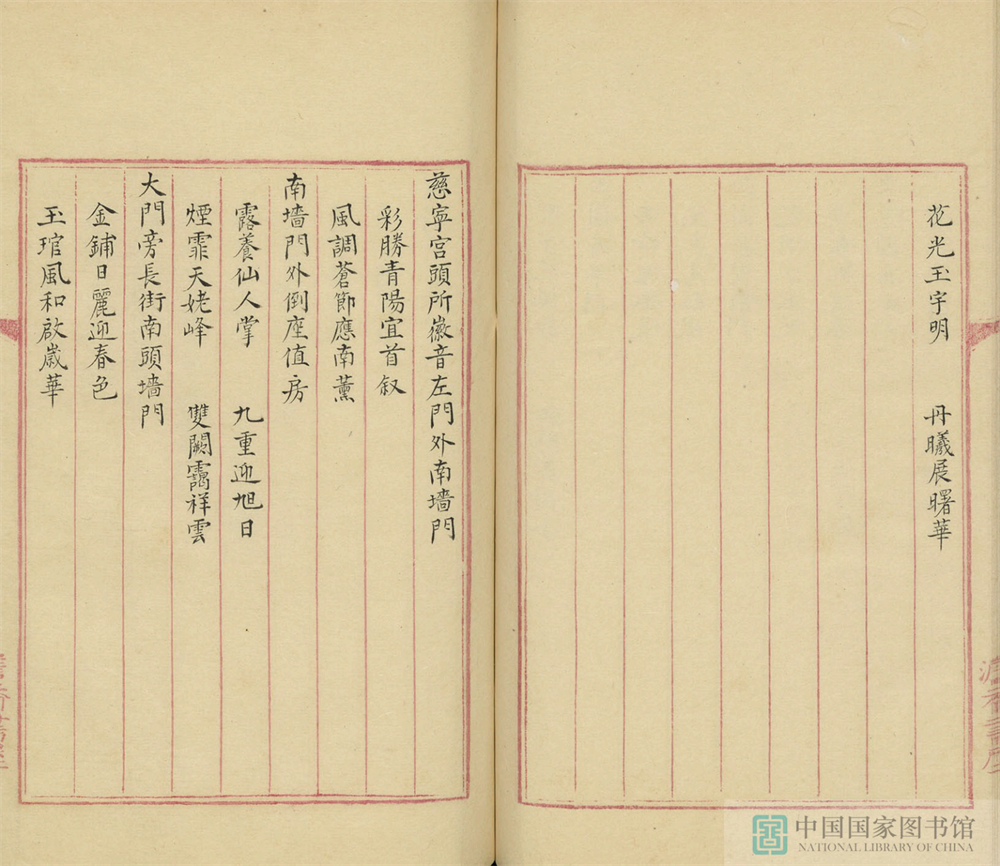 花光玉宇明　丹曦展曙華
慈寧宮頭所徽音左門外南墻門
彩勝青陽宜首叙
風調蒼節應南薰
南墻門外倒座值房
露養仙人掌　九重迎旭日
煙霏天姥峰　雙闕靄祥雲
大門旁長街南頭墻門
金鋪日麗迎春色
玉琯風和啟歲華
中国国家图书馆
NATIONAL LIBRARY OF CHINA